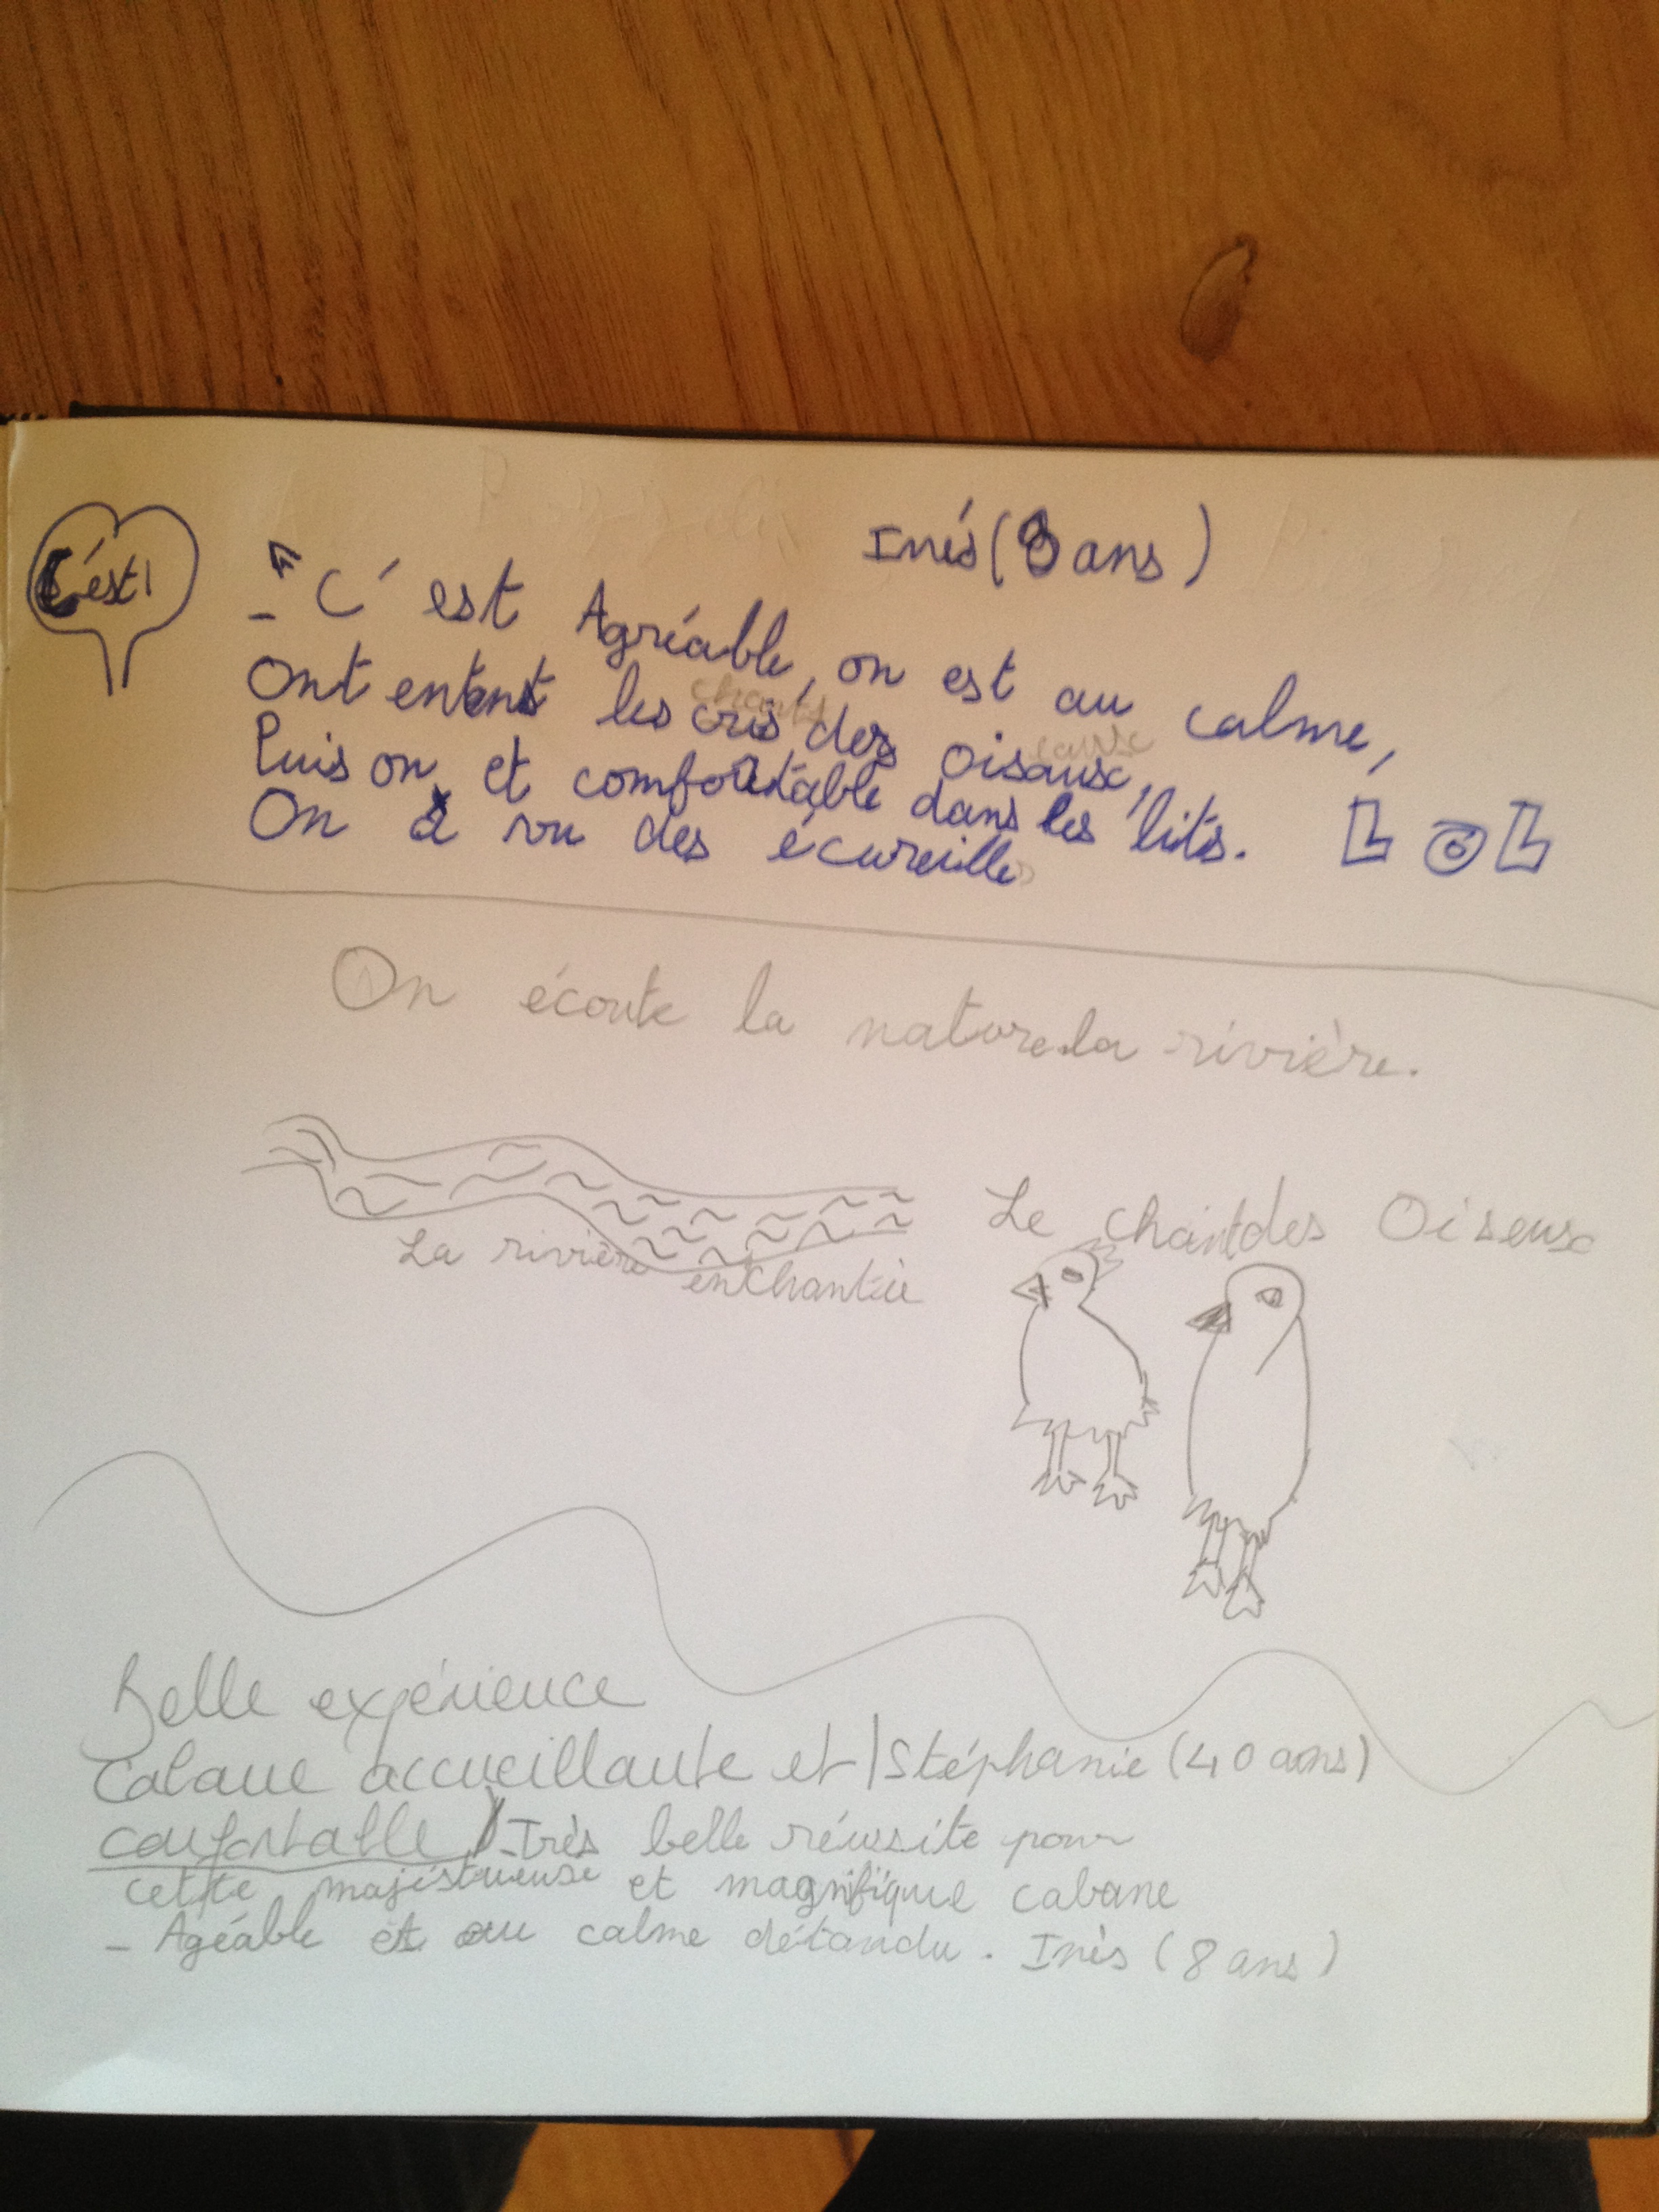 Inés (8 ans)
C'est
- C'est Agréable, on est au calme,
Ont entent les cris des oiseause,
chants
Puis on et comfortable dans les lits.
On a vu des écureilles
LOL
On écoute la nature la rivière.
La rivière enchantée
Le chant des Oiseuse
Belle expérience
Cabane accueillante et | Stéphanie (40 ans)
confortable - Très belle réussite pour
cette majistueuse et magnifique cabane
- Agéable et au calme détandu. Inès (8 ans)